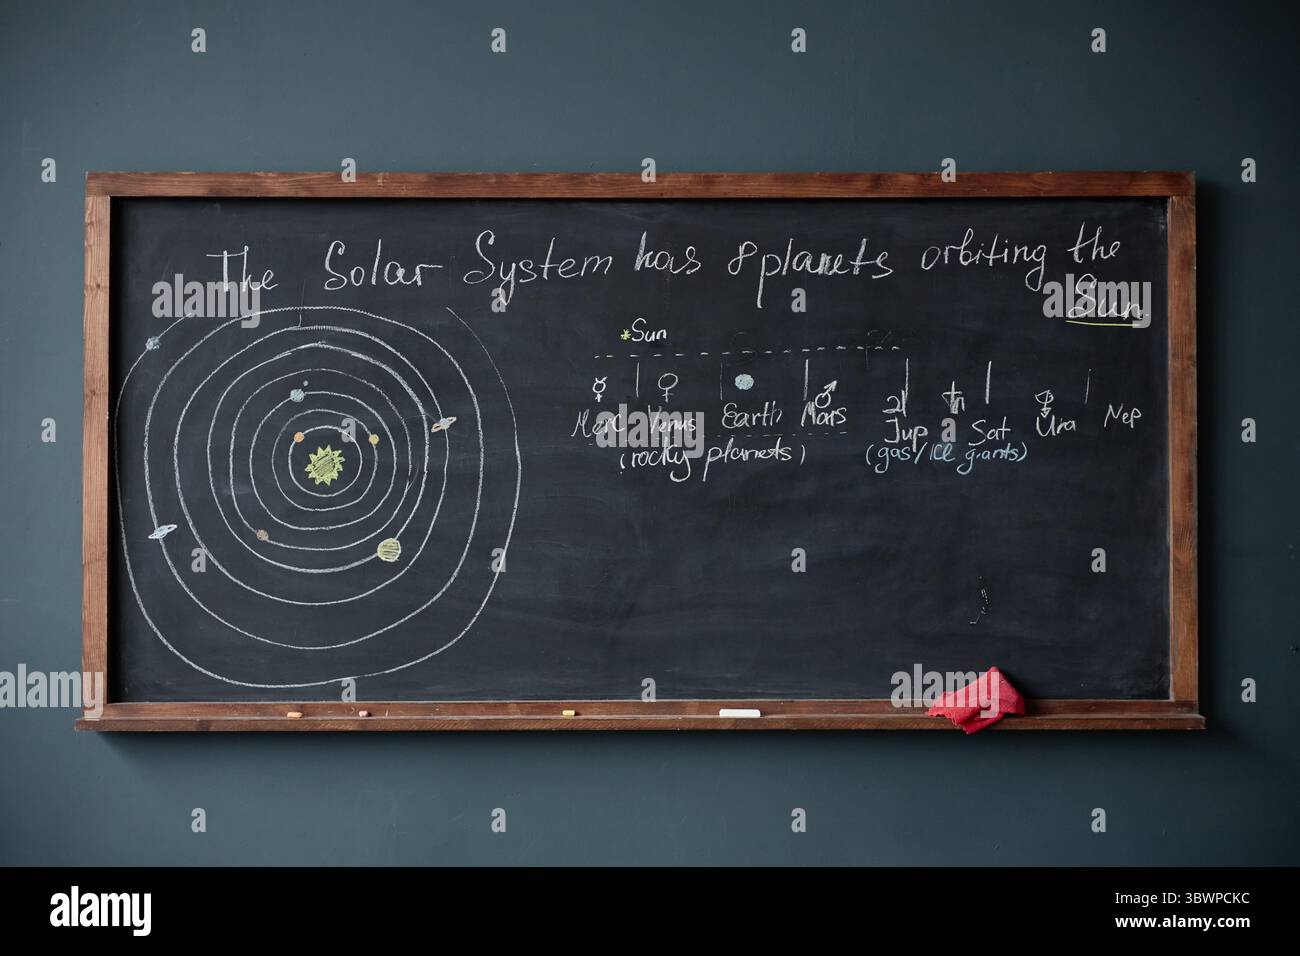 The Solar System has 8 planets orbiting the
Sun
Sun
Merc Venus Earth Mars Jup Sat Ura Nep
(rocky planets) (gas/ice giants)
alamy
Image ID: 3BWPCKC
www.alamy.com